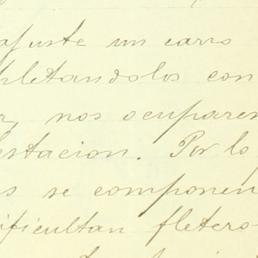 ajuste un carro
pletandolos con
r, nos ocupare
estacion. Por lo
s se componen
ificultan fletero